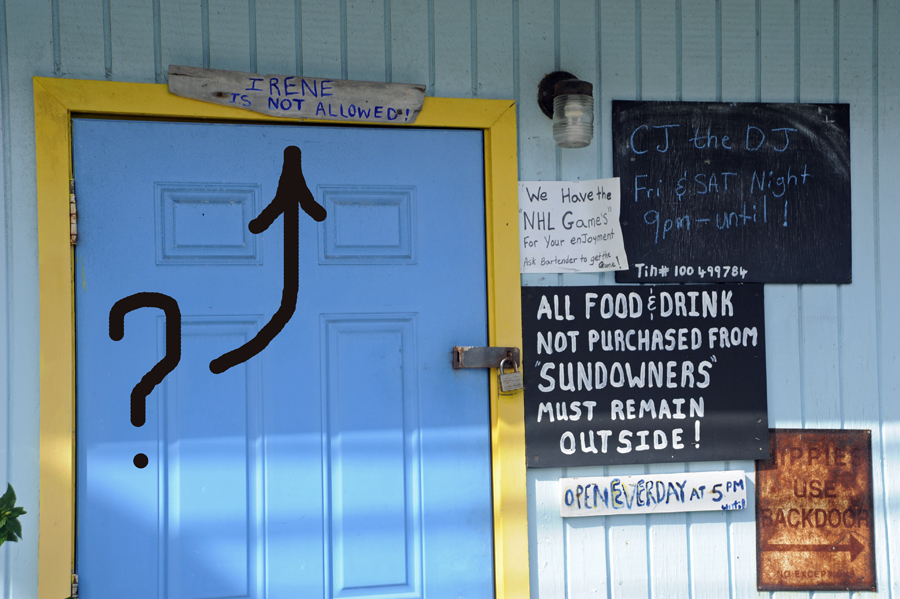 IRENE
IS NOT ALLOWED!
?
CJ the DJ
Fri & SAT Night
9pm - until!
Tin# 100 499784
We Have the
"NHL Game's"
For Your enJoyment
Ask Bartender to get the
Game!
ALL FOOD & DRINK
NOT PURCHASED FROM
"SUNDOWNERS"
MUST REMAIN
OUTSIDE!
OPEN EVERDAY AT 5PM
until
HIPPIES
USE
BACKDOOR
NO EXCEPTIONS